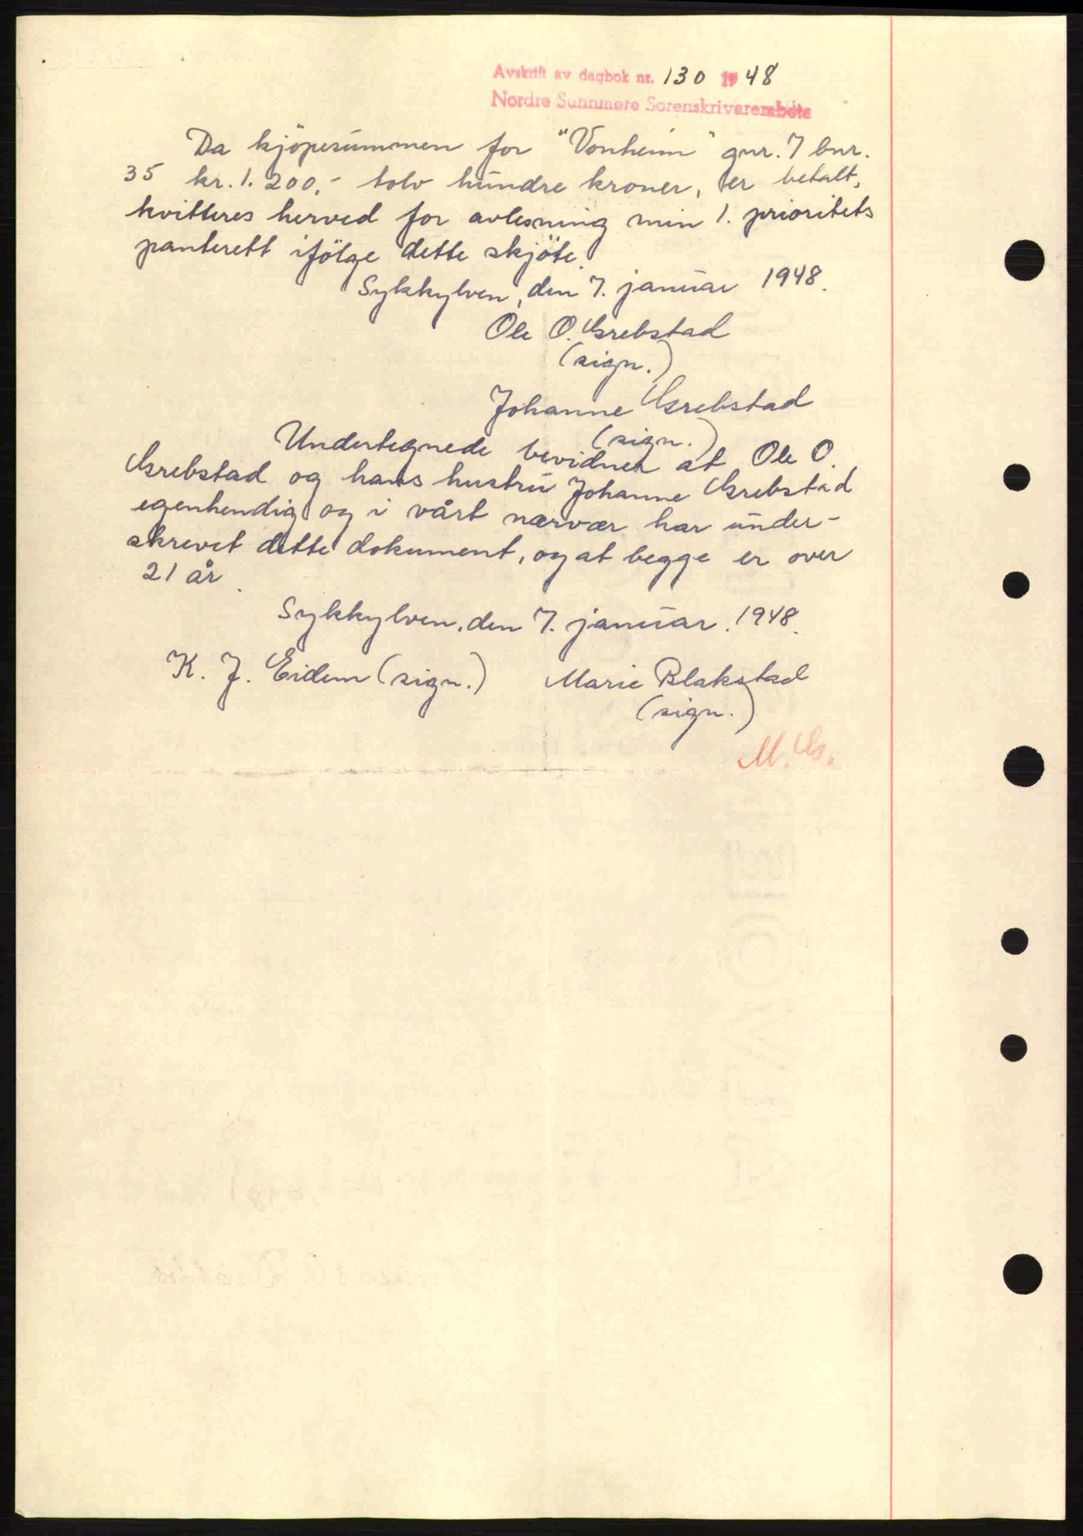 Avskrift av dagbok nr. 130 1948
Nordre Sunnmøre Sorenskriverembete
Da kjöpesummen for "Vonheim" gnr. 7 bnr.
35 kr. 1.200,- tolv hundre kroner, er betalt,
kvitteres herved for avlesning min 1. prioritets
panterett ifölge dette skjöte.
Sykkylven, den 7. januar 1948.
Ole O. Grebstad
(sign.)
Johanne Grebstad
(sign.)
Undertegnede bevidner at Ole O.
Grebstad og hans hustru Johanne Grebstad
egenhendig og i vårt nærvær har under-
skrevet dette dokument, og at begge er over
21 år.
Sykkylven, den 7. januar 1948.
K. J. Eidem (sign.) Marie Blakstad
(sign.)
M. G.